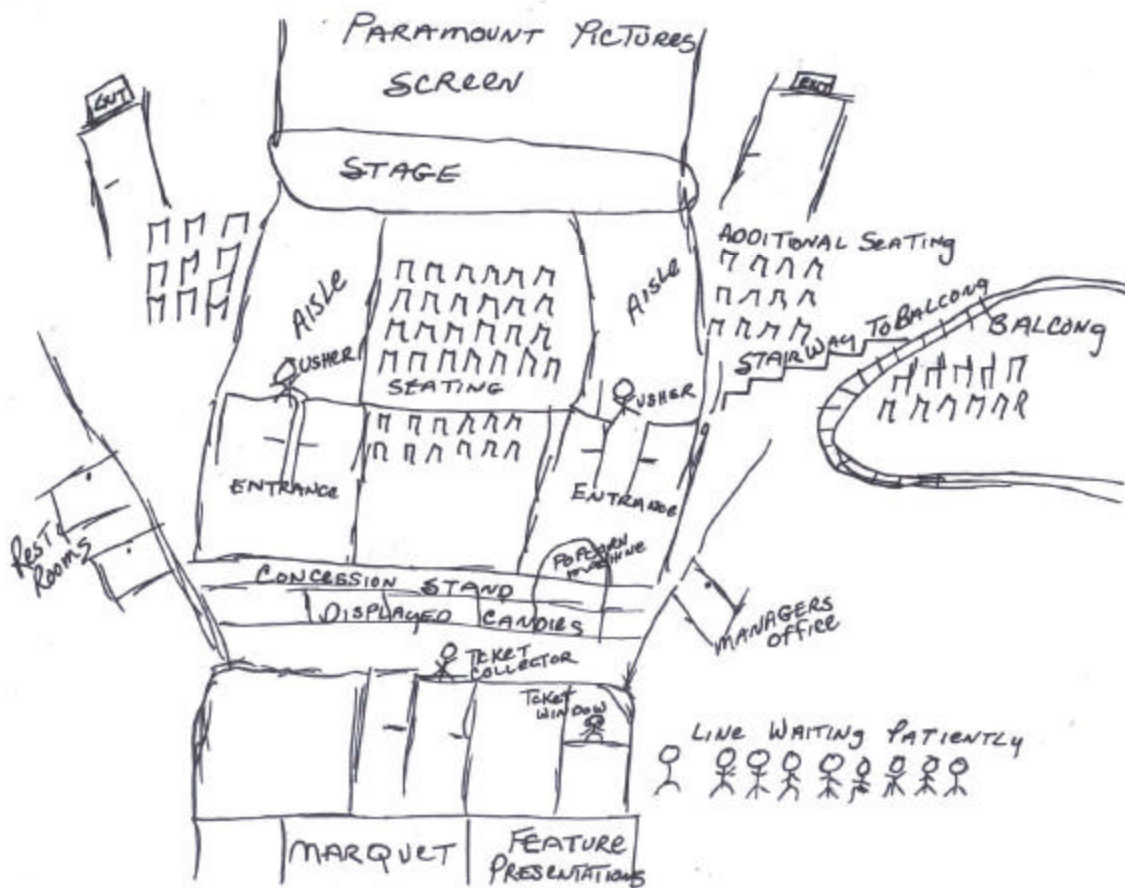 PARAMOUNT PICTURES
SCREEN
EXIT
EXIT
STAGE
ADDITIONAL SEATING
AISLE
AISLE
STAIRWAY TO BALCONG
BALCONG
USHER
SEATING
USHER
ENTRANCE
ENTRANCE
REST
ROOMS
POPCORN
MACHINE
CONCESSION STAND
DISPLAYED CANDIES
MANAGERS
OFFICE
TICKET
COLLECTOR
TICKET
WINDOW
LINE WAITING PATIENTLY
MARQUET
FEATURE
PRESENTATIONS